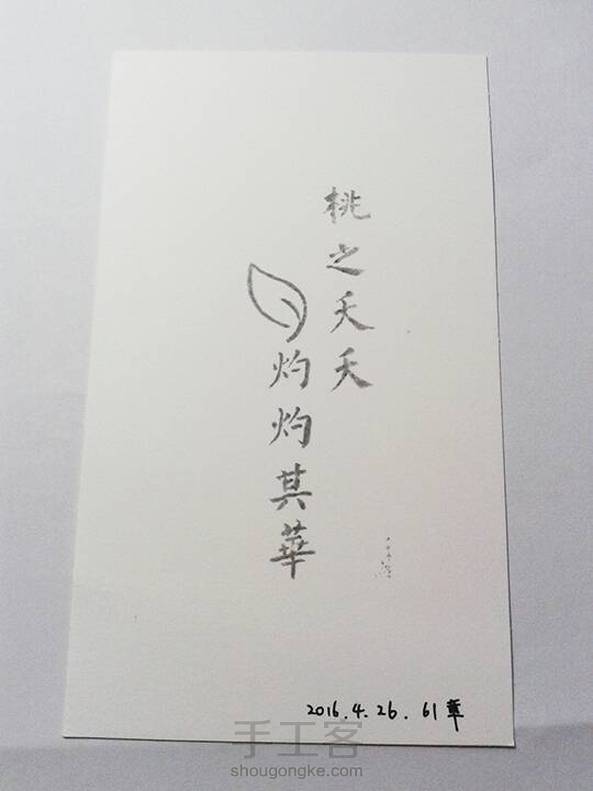 桃之夭夭
灼灼其華
2016.4.26. 61章
手工客
shougongke.com